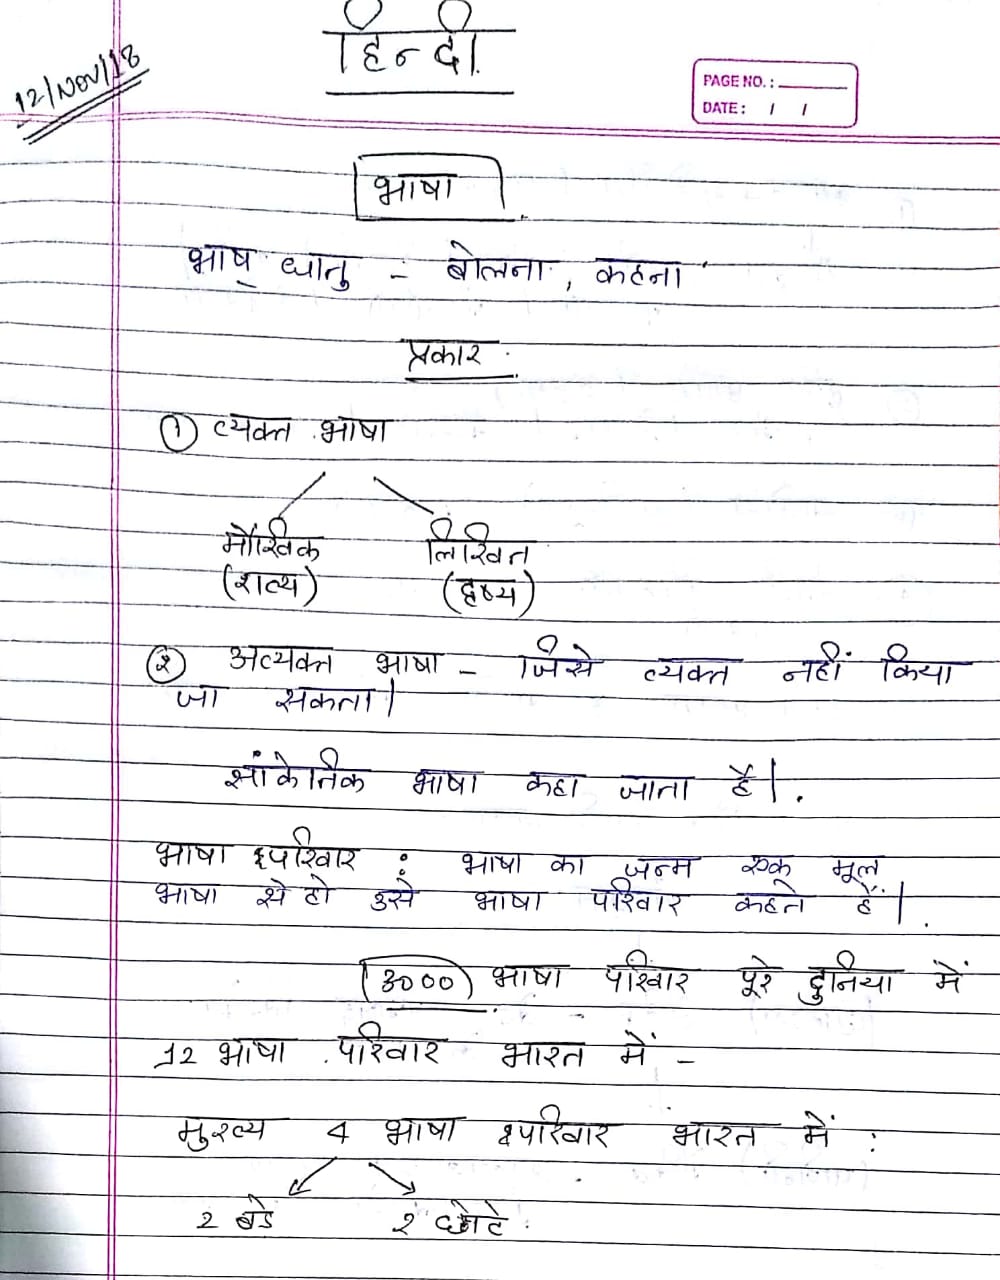 हिन्दी
12/Nov/18
PAGE NO.:
DATE: / /
भाषा
भाष् धातु - बोलना, कहना
प्रकार
① व्यक्त भाषा
मौखिक लिखित
(शव्य) (दृष्य)
② अव्यक्त भाषा - जिसे व्यक्त नहीं किया
जा सकता।
सांकेतिक भाषा कहा जाता है।
भाषा परिवार : भाषा का जन्म एक मूल
भाषा से हो उसे भाषा परिवार कहते हैं।
3000 भाषा परिवार पूरे दुनिया में
12 भाषा परिवार भारत में -
मुख्य 4 भाषा परिवार भारत में :
2 बडे 2 छोटे